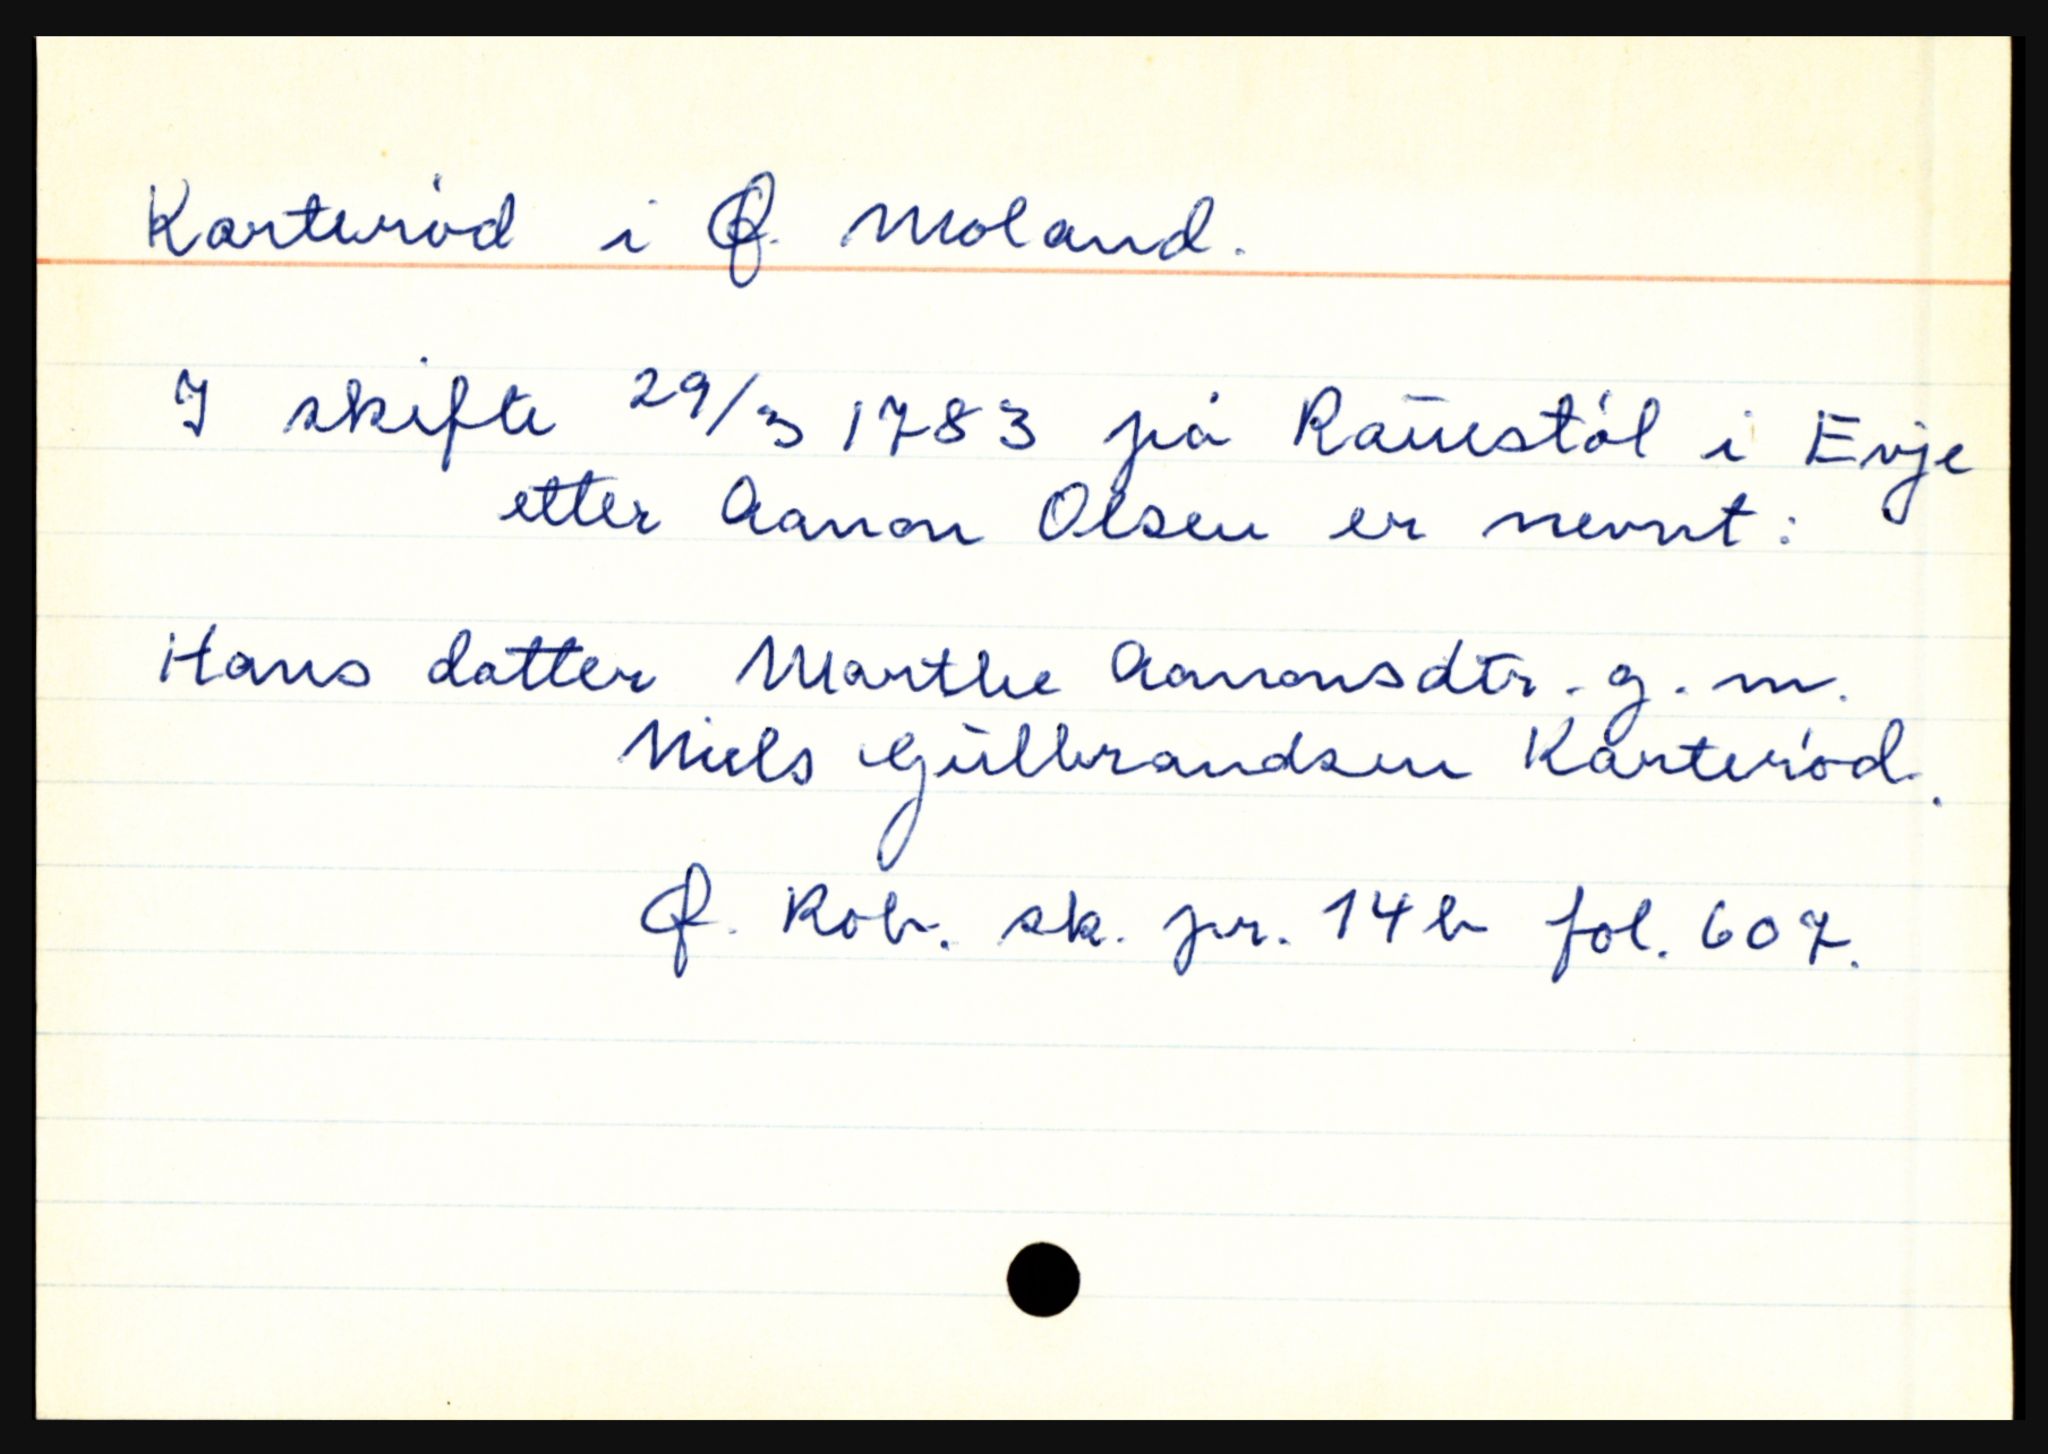 Karterød i Ø. Moland.
I skifte 29/3 1783 på Raustøl i Evje
etter Aanon Olsen er nevnt:
Hans datter Marthe Aanonsdtr. g. m.
Niels Gulbrandsen Karterød.
Ø. Rob. sk. pr. 14 b fol. 607.